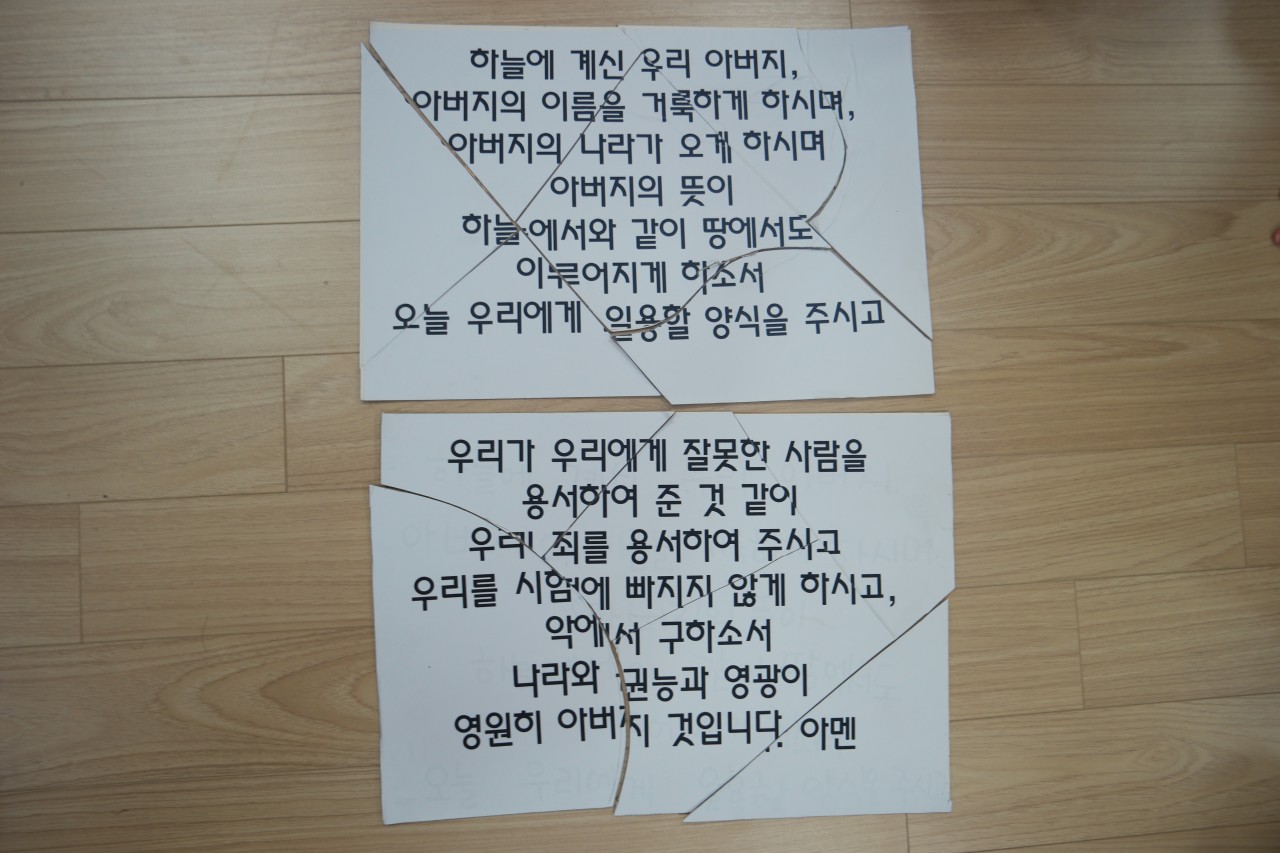 하늘에 계신 우리 아버지,
아버지의 이름을 거룩하게 하시며,
아버지의 나라가 오게 하시며
아버지의 뜻이
하늘에서와 같이 땅에서도
이루어지게 하소서
오늘 우리에게 일용할 양식을 주시고
우리가 우리에게 잘못한 사람을
용서하여 준 것 같이
우리 죄를 용서하여 주시고
우리를 시험에 빠지지 않게 하시고,
악에서 구하소서
나라와 권능과 영광이
영원히 아버지 것입니다. 아멘